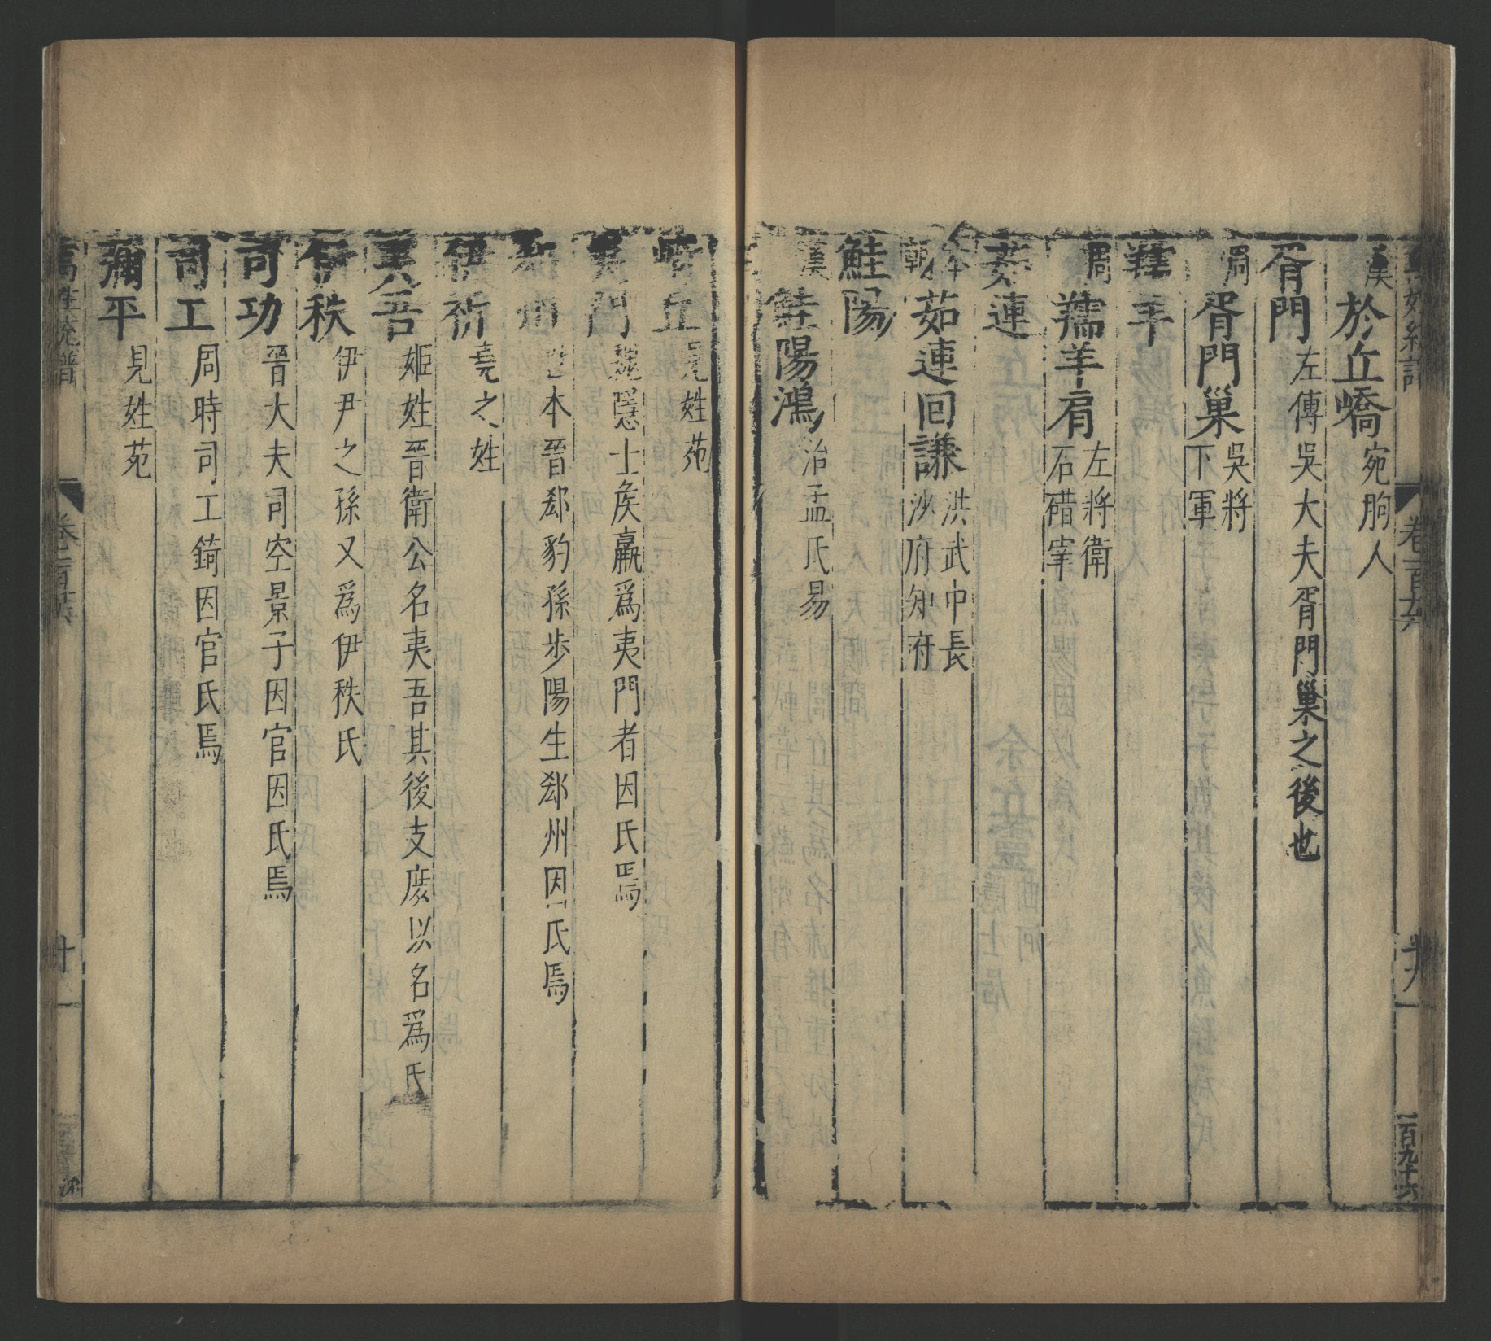 漢
於丘嶠宛朐人
胥門左傳吳大夫胥門巢之後也
周
胥門巢吳將
下軍
羊
周
羊肩左將衛
石碏宰
茹連
本
朝
茹連回謙洪武中長
沙府知府
鮭陽
漢
鮭陽鴻治孟氏易
卷一百十六
十八
一百九十六
丘見姓苑
門魏隱士侯嬴為夷門者因氏焉
州世本晉郄豹孫步陽生郄州因氏焉
伊祈堯之姓
夷吾姬姓晉衛公名夷吾其後支庶以名為氏
伊秩伊尹之孫又為伊秩氏
司功晉大夫司空景子因官因氏焉
司工周時司工錡因官氏焉
彌平見姓苑
萬姓統譜